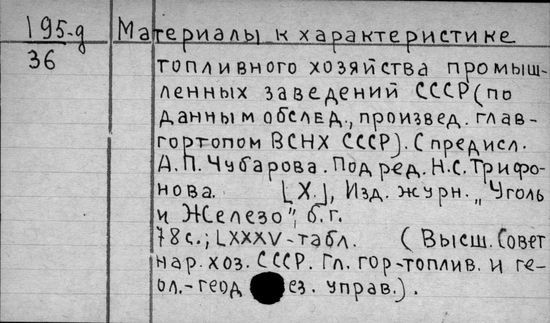 195-д Материалы к характеристике
36 топливного хозяйства промыш-
ленных заведений СССР (по
данным обслед., произвед. глав-
гортопом ВСНХ СССР). С предисл.
А.П. Чубарова. Под ред. Н.С. Трифо-
нова. [Х.], Изд. журн. „Уголь
и Железо", б.г.
78 с.; LXXXV-табл. (Высш. Совет
нар. хоз. СССР. Гл. гор-топлив. и ге-
ол.-геод ез. управ.).